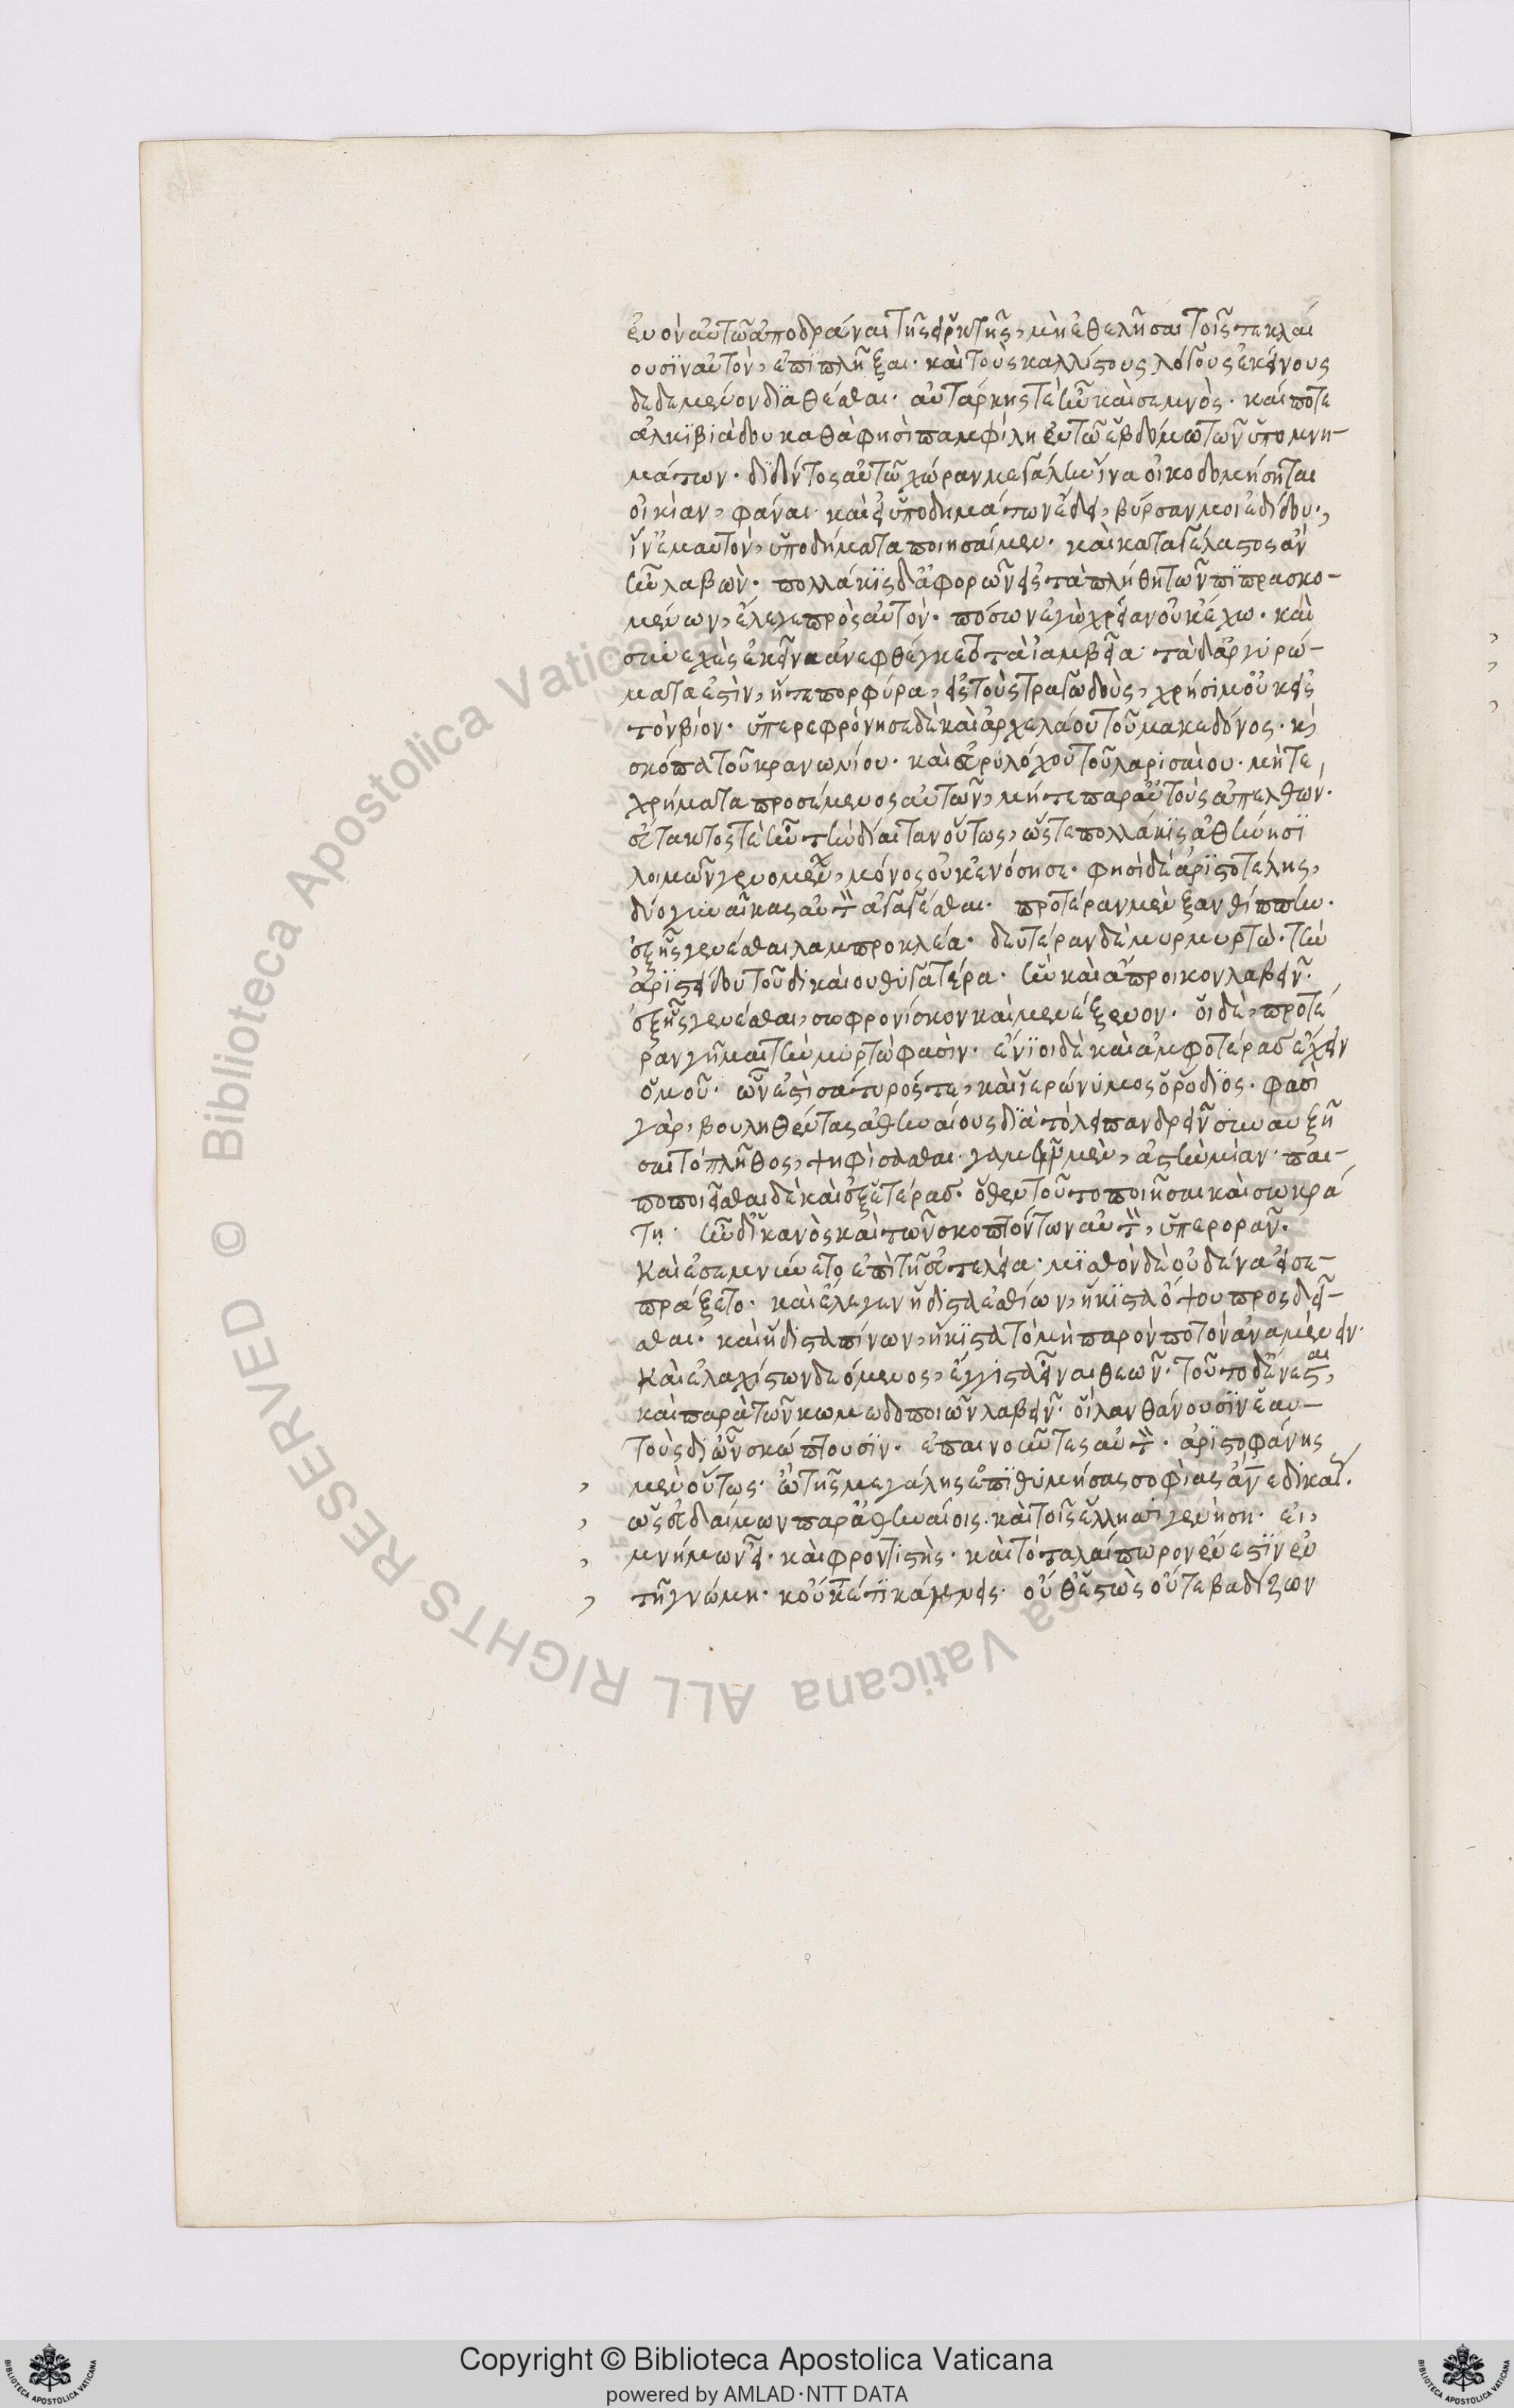 ἐνὸν αὐτῶ ἀποδράναι τῆς εἱρκτῆς, μὴ ἐθελῆσαι τοῖς τε κλαί
ουσιν αὐτὸν, ἐπιπλῆξαι. καὶ τοὺς καλλίστους λόγους ἐκείνους
δεδεμένον διαθέσθαι. αὐτάρκης τὲ ἦν καὶ σεμνὸς. καί ποτε
ἀλκιβιάδου καθὰ φησὶ παμφίλη ἐν τῶ ἑβδόμω τῶν ὑπομνη-
μάτων. διδόντος αὐτῶ χώραν μεγάλην ἵνα οἰκοδομήσηται
οἰκίαν, φάναι. καὶ εἰ ὑποδημάτων ἔδει, βύρσαν μοι ἐδίδου,
ἵν' ἐμαυτὸν, ὑποδήματα ποιησαίμην. καὶ καταγέλαστος ἂν
ἦν λαβών. πολλάκις δ' ἀφορῶν εἰς τὰ πλήθη τῶν πιπρασκο-
μένων, ἔλεγε πρὸς αὑτόν. πόσων ἐγὼ χρείαν οὐκ ἔχω. καὶ
συνεχὲς ἐκεῖνα ἀνεφθέγγετο τὰ ἰαμβεῖα. τὰ δ' ἀργυρώ-
ματα ἐστὶν, ἥ τε πορφύρα, εἰς τοὺς τραγωδοὺς, χρήσιμ' οὐκ εἰς
τὸν βίον. ὑπερεφρόνησε δὲ καὶ ἀρχελάου τοῦ μακεδόνος. κὶ
σκόπα τοῦ κρανωνίου. καὶ εὐρυλόχου τοῦ λαρισαίου. μήτε
χρήματα προσέμενος αὐτῶν, μήτε παρ' αὐτοὺς ἀπελθὼν.
εὔτακτός τὲ ἦν τὴν δίαιταν οὕτως, ὥστε πολλάκις ἀθήνησι
λοιμῶν γενομένων, μόνος οὐκ ἐνόσησε. φησὶ δὲ ἀριστοτέλης,
δύο γυναῖκας αὐτὸν ἀγαγέσθαι. προτέραν μὲν ξανθίππην.
ἐξ ἧς γενέσθαι λαμπροκλέα. δευτέραν δὲ μυρμυρτὼ. τὴν
ἀριστείδου τοῦ δικαίου θυγατέρα. ἣν καὶ ἄπροικον λαβεῖν.
ἐξ ἧς γενέσθαι, σωφρονίσκον καὶ μενέξενον. οἱ δὲ, προτέ
ραν γῆμαι τὴν μυρτώ φασὶν. ἔνιοι δὲ καὶ ἀμφοτέρας ἔχειν
ὁμοῦ. ὧν ἐστὶ σάτυρός τε, καὶ ἱερώνυμος ὁ ῥόδιος. φασὶ
γὰρ, βουληθέντας ἀθηναίους διὰ τὸ λειπανδρεῖν συναυξῆ
σαι τὸ πλῆθος, ψηφίσασθαι. γαμεῖν μὲν, ἀστὴν μίαν. παι-
ποποιεῖσθαι δὲ καὶ ἐξ ἑτέρας. ὅθεν τοῦτο ποιῆσαι καὶ σωκρά
τη. ἦν δ' ἱκανὸς καὶ τῶν σκοπτόντων αὐτὸν, ὑπερορᾶν.
Καὶ ἐσεμνύνετο ἐπὶ τῆ εὐτελεία. μισθὸν δὲ οὐδένα εἰσε-
πράξατο. καὶ ἔλεγεν ἥδιστα ἐσθίων, ἥκιστα ὄψου προσδεῖ-
σθαι. καὶ ἥδιστα πίνων, ἥκιστα τὸ μὴ παρὸν ποτὸν ἀναμένειν.
Καὶ ἐλαχίστων δεόμενος, ἔγγιστα εἶναι θεῶν. τοῦτο δ' ἔνεσται,
καὶ παρὰ τῶν κωμωδοποιῶν λαβεῖν. οἳ λανθάνουσιν ἑαυ-
τοὺς δι' ὧν σκώπτουσιν. ἐπαινοῦντες αὐτὸν. ἀριστοφάνης
μὲν οὕτως. ὦ τῆς μεγάλης ἐπιθυμήσας σοφίας ἄνε δικαί.
ὡς εὐδαίμων παρ' ἀθηναίοις. καὶ τοῖς ἕλλησι γενήση. εἰ,
μνήμων εἶ. καὶ φροντιστὴς. καὶ τὸ ταλαίπωρον ἔνεστιν ἐν
τῆ γνώμη. κοὐκ ἔτι κάμνεις. οὔθ' ἑστὼς οὔτε βαδίζων
Copyright © Biblioteca Apostolica Vaticana
powered by AMLAD·NTT DATA
© Biblioteca Apostolica Vaticana ALL RIGHTS RESERVED